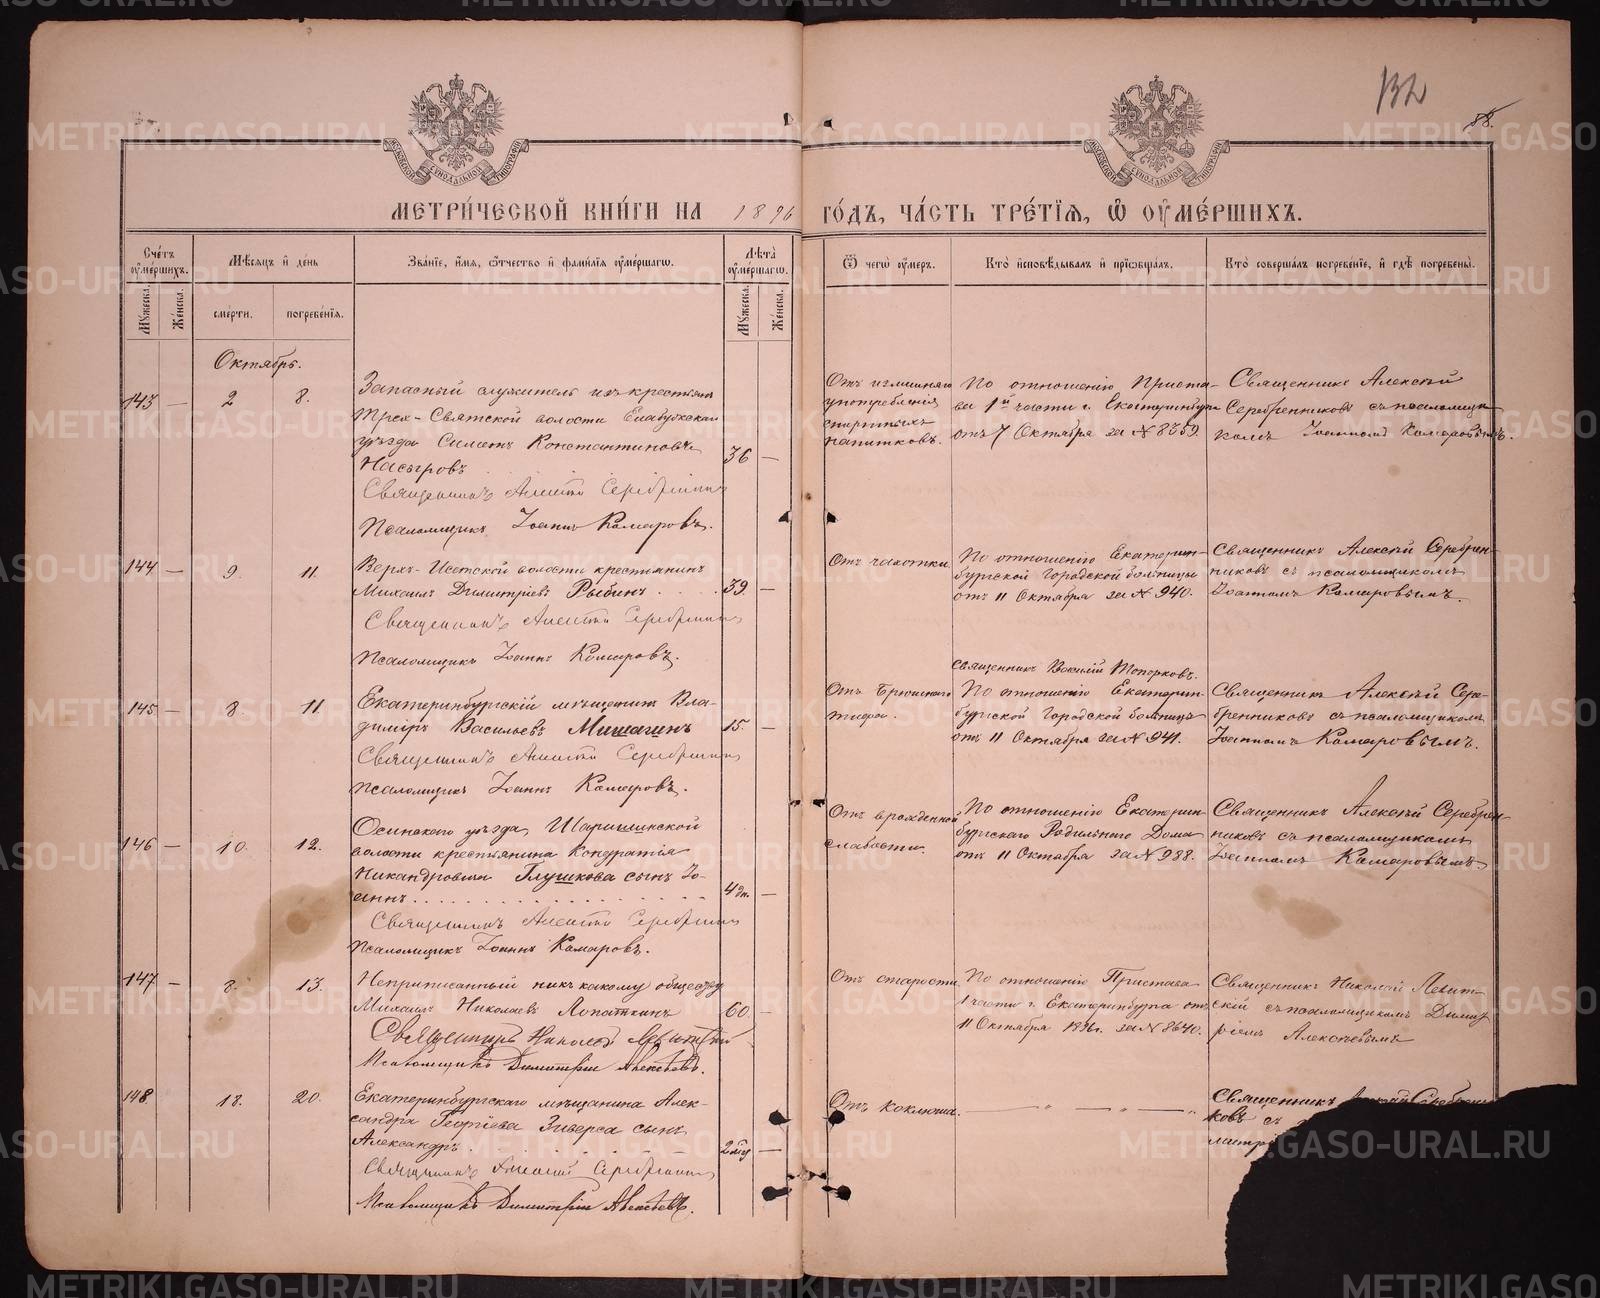 132
88.
МОСКОВСКОЙ СѴНОДАЛЬНОЙ ТИПОГРАФІИ
МОСКОВСКОЙ СѴНОДАЛЬНОЙ ТИПОГРАФІИ
МЕТРИ́ЧЕСКОЙ КНИ́ГИ НА 1896 ГО́ДЪ, ЧА́СТЬ ТРЕ́ТІѦ, Ѿ ОУМЕ́РШИХЪ.
Сче́тъ оуме́ршихъ.
Мѣ́сѧцъ и де́нь
Зва́нїе, и́мѧ, ѻ́тчество и фами́лїѧ оуме́ршагѡ.
Лѣ́та оуме́ршагѡ.
Ѿ чегѡ̀ оу́меръ.
Кто̀ и҆сповѣ́дывалъ и прїѡбща́лъ.
Кто̀ соверша́лъ погребе́нїе, и гдѣ̀ погребены̀.
Мꙋ́жеска.
Же́нска.
сме́рти.
погребе́нїѧ.
Мꙋ́жеска.
Же́нска.
Октябрь.
143 — 2 8.
Запасный служитель изъ крестьянъ
Трех-Святской волости Елабужскаго
уѣзда Силетъ Константиновъ
Насыровъ
36 —
Священникъ Алексѣй Серебренниковъ
Псаломщикъ Іоаннъ Комаровъ.
Отъ излишняго
употребленія
спиртныхъ
напитковъ.
По отношенію Приста-
ва 1й части г. Екатеринбурга
отъ 7 Октября за № 8359.
Священникъ Алексѣй
Серебренниковъ съ псаломщи-
комъ Іоанномъ Комаровымъ.
144 — 9. 11.
Верхъ-Исетской волости крестьянинъ
Михаилъ Димитріевъ Рыбинъ . . . 39. —
Священникъ Алексѣй Серебренниковъ
Псаломщикъ Іоаннъ Комаровъ.
Отъ чахотки.
По отношенію Екатерин-
бургской Городской больницы
отъ 11 Октября за № 940.
Священникъ Алексѣй Серебрен-
никовъ съ псаломщикомъ
Іоанномъ Комаровымъ.
Священникъ Василій Топорковъ.
145 — 8 11.
Екатеринбургскій мѣщанинъ Вла-
димiръ Васильевъ Мишагинъ 15. —
Священникъ Алексѣй Серебренниковъ
Псаломщикъ Іоаннъ Комаровъ.
Отъ Брюшнаго
тифа.
По отношенію Екатерин-
бургской Городской больницы
отъ 11 Октября за № 941.
Священникъ Алексѣй Сере-
бренниковъ съ псаломщикомъ
Іоанномъ Комаровымъ.
146 — 10. 12.
Осинскаго уѣзда,
волости крестьянина Кондратія
Никандровича Глушкова сынъ Іо-
аннъ . . . . . . . . . . . 4 дн. —
Священникъ Алексѣй Серебренниковъ
Псаломщикъ Іоаннъ Комаровъ.
Отъ врожденной
слабости.
По отношенію Екатерин-
бургскаго Родильнаго Дома
отъ 11 Октября за № 988.
Священникъ Алексѣй Серебрен-
никовъ съ псаломщикомъ
Іоанномъ Комаровымъ
147 — 8. 13.
Неприписанный ник какому обществу
Михаилъ Николаевъ Лопаткинъ 60 —
Священникъ Николай Левитскій
Псаломщикъ Димитрій Алексѣевъ.
Отъ старости.
По отношенію Пристава
1 части г. Екатеринбурга отъ
11 Октября 1896г. за № 8640.
Священникъ Николай Левит-
скій съ псаломщикомъ Димит-
ріемъ Алексѣевымъ
148 18. 20.
Екатеринбургскаго мѣщанина Алек-
сандра Георгіева Зиверса сынъ
Александръ . . . . . . 2 мѣс —
Священникъ Алексѣй Серебренниковъ
Псаломщикъ Димитрій Алексѣевъ.
Отъ коклюша.
— „ — „ — „
Священникъ Алексѣй Серебренни-
ковъ съ
METRIKI.GASO-URAL.RU